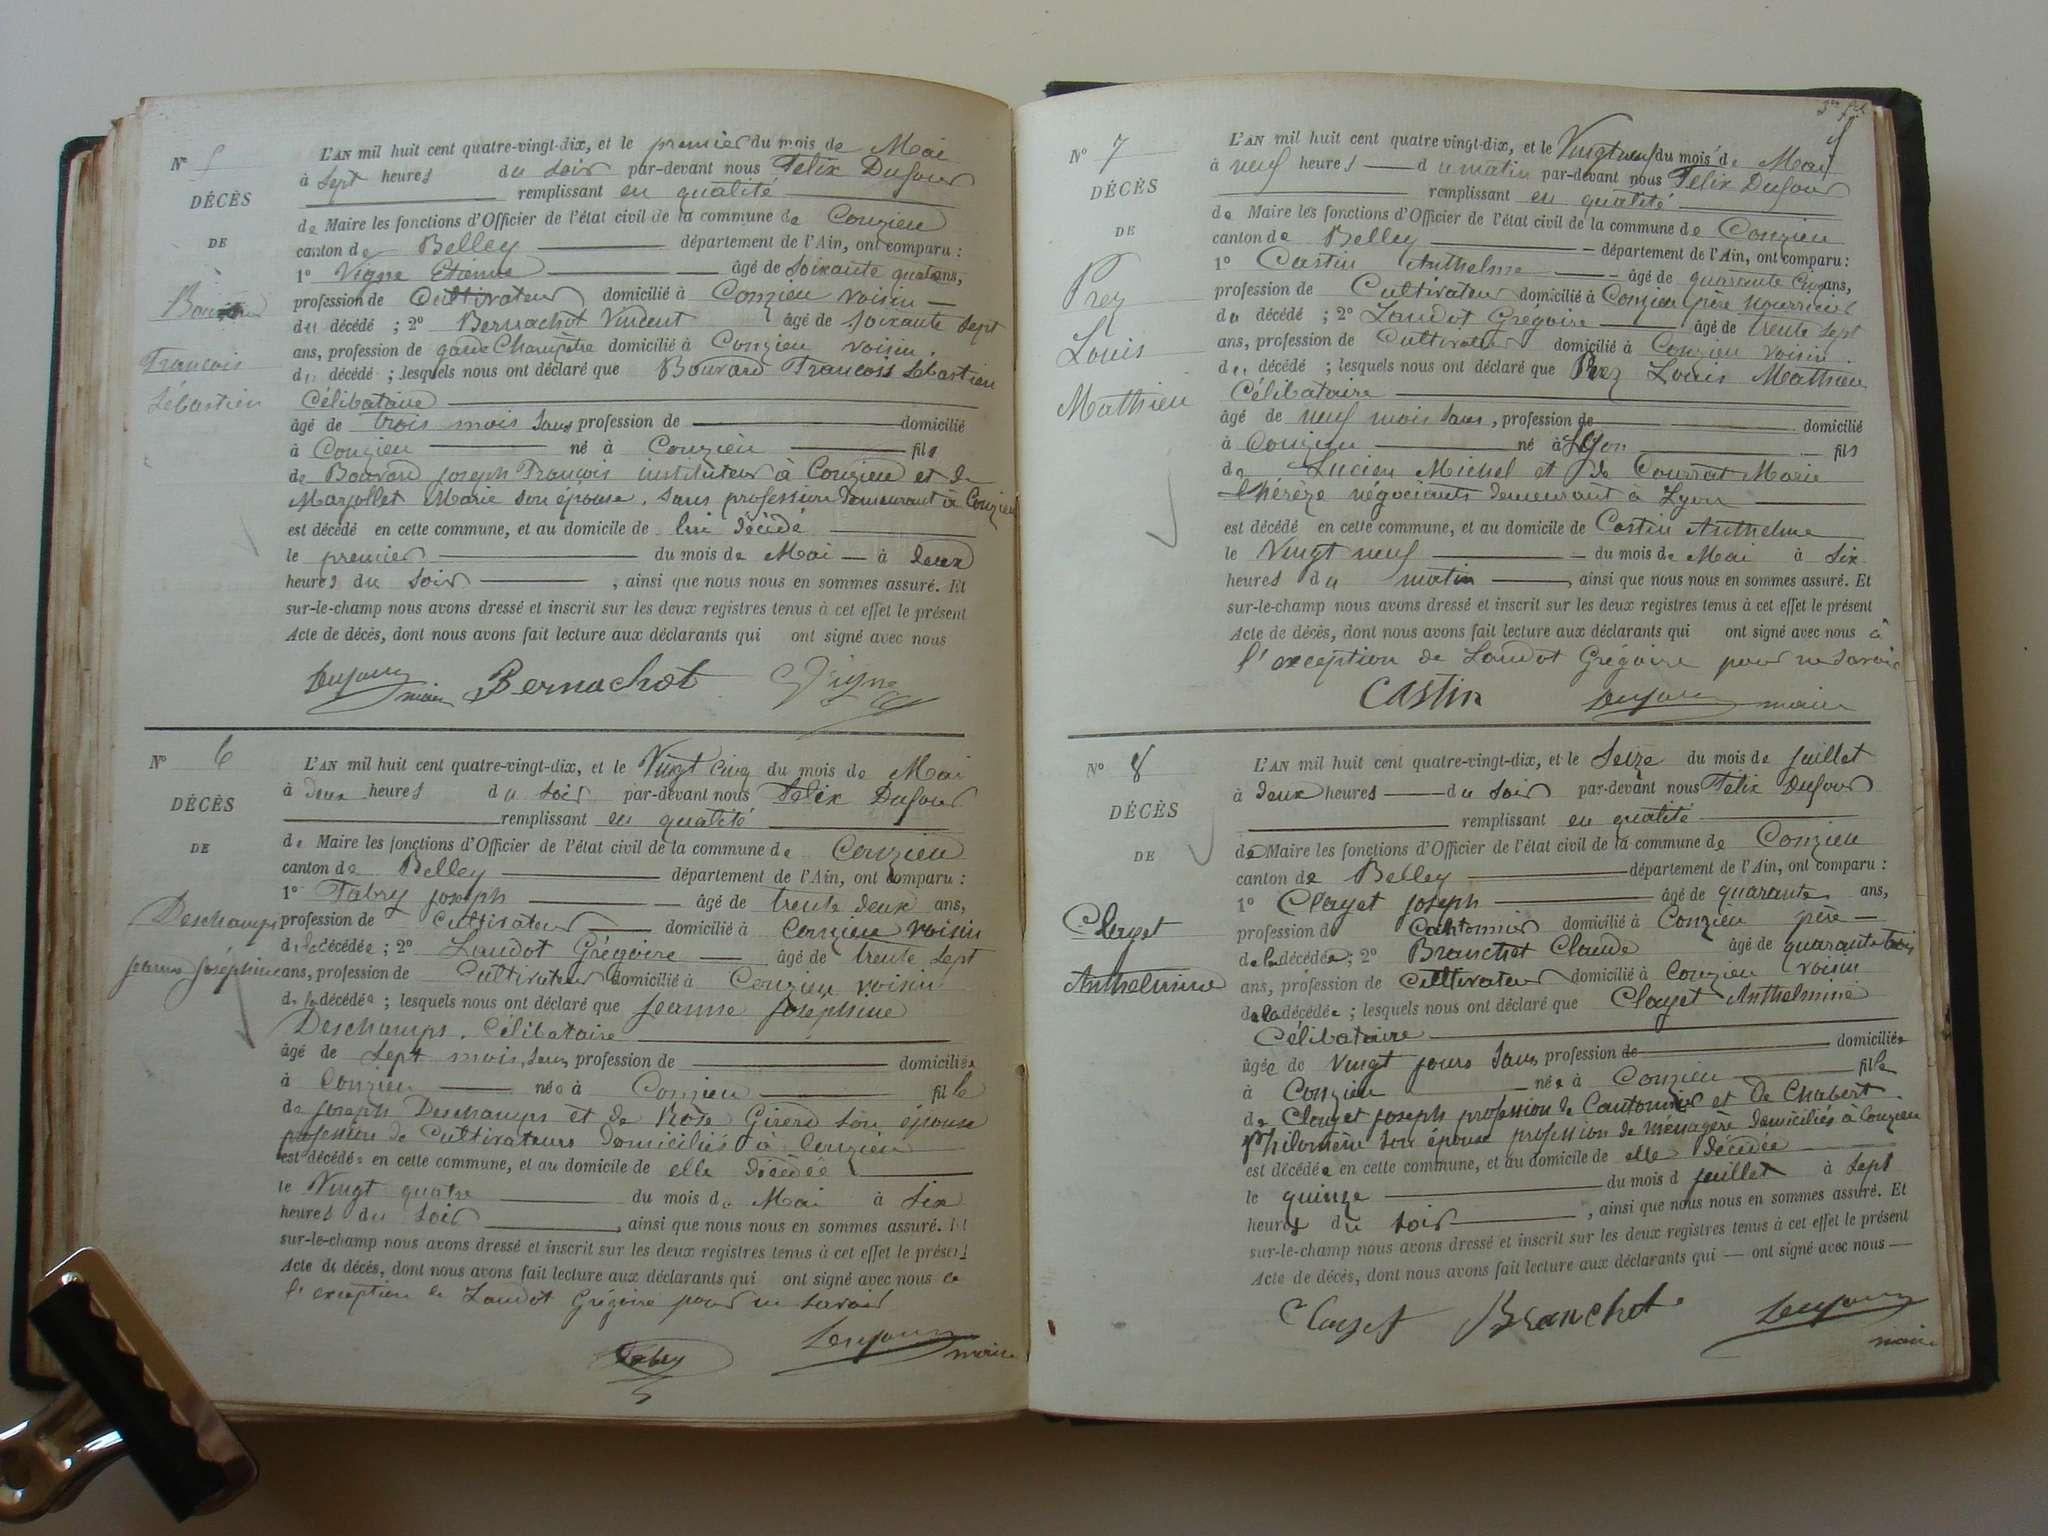 Nº 5
DÉCÈS
DE
François
Sébastien
L'AN mil huit cent quatre-vingt-dix, et le premier du mois de Mai
à Sept heures du soir par-devant nous Félix Dufour
remplissant en qualité
de Maire les fonctions d'Officier de l'état civil de la commune de Conzieu
canton de Belley département de l'Ain, ont comparu :
1º Vigne Etienne âgé de soixante quatre ans,
profession de Cultivateur domicilié à Conzieu voisin
du décédé ; 2º Bernachot Vincent âgé de soixante sept
ans, profession de garde Champêtre domicilié à Conzieu voisin.
du décédé ; lesquels nous ont déclaré que Bouvard François Sébastien
Célibataire
âgé de trois mois sans profession de domicilié
à Conzieu né à Conzieu fils
de Bouvard joseph François instituteur à Conzieu et de
Marjollet Marie son épouse, sans profession demeurant à Conzieu
est décédé en cette commune, et au domicile de lui décédé
le premier du mois de Mai à deux
heures du soir, ainsi que nous nous en sommes assuré. Et
sur-le-champ nous avons dressé et inscrit sur les deux registres tenus à cet effet le présent
Acte de décès, dont nous avons fait lecture aux déclarants qui ont signé avec nous
Dufour maire Bernachot Vigne
Nº 6
DÉCÈS
DE
Deschamps
jeanne joséphine
L'AN mil huit cent quatre-vingt-dix, et le Vingt cinq du mois de Mai
à deux heures du soir par-devant nous Félix Dufour
remplissant en qualité
de Maire les fonctions d'Officier de l'état civil de la commune de Conzieu
canton de Belley département de l'Ain, ont comparu :
1º Fabry joseph âgé de trente deux ans,
profession de Cultivateur domicilié à Conzieu voisin
de la décédée ; 2º Landot Grégoire âgé de trente sept
ans, profession de Cultivateur domicilié à Conzieu voisin
de la décédée ; lesquels nous ont déclaré que jeanne joséphine
Deschamps. Célibataire
âgé de sept mois, sans profession de domiciliée
à Conzieu née à Conzieu fille
de joseph Deschamps et de Rose Girerd son épouse
profession de Cultivateurs domiciliés à Conzieu
est décédée en cette commune, et au domicile de elle décédée
le Vingt quatre du mois de Mai à six
heures du soir, ainsi que nous nous en sommes assuré. Et
sur-le-champ nous avons dressé et inscrit sur les deux registres tenus à cet effet le présent
Acte de décès, dont nous avons fait lecture aux déclarants qui ont signé avec nous à
l'exception de Landot Grégoire pour ne savoir
Fabry Dufour maire
Nº 7
DÉCÈS
DE
Prez
Louis
Mathieu
L'AN mil huit cent quatre-vingt-dix, et le Vingt neuf du mois de Mai
à neuf heures du matin par-devant nous Félix Dufour
remplissant en qualité
de Maire les fonctions d'Officier de l'état civil de la commune de Conzieu
canton de Belley département de l'Ain, ont comparu :
1º Castin Anthelme âgé de quarante cinq ans,
profession de Cultivateur domicilié à Conzieu père nourricier
du décédé ; 2º Landot Grégoire âgé de trente sept
ans, profession de Cultivateur domicilié à Conzieu voisin.
du décédé ; lesquels nous ont déclaré que Prez Louis Mathieu
Célibataire
âgé de neuf mois sans, profession de domicilié
à Conzieu né à Lyon fils
de Lucien Michel et de Courrat Marie
thérèze négociants demeurant à Lyon
est décédé en cette commune, et au domicile de Castin Anthelme
le Vingt neuf du mois de Mai à six
heures du matin, ainsi que nous nous en sommes assuré. Et
sur-le-champ nous avons dressé et inscrit sur les deux registres tenus à cet effet le présent
Acte de décès, dont nous avons fait lecture aux déclarants qui ont signé avec nous à
l'exception de Landot Grégoire pour ne savoir
CASTIN Dufour maire
Nº 8
DÉCÈS
DE
Clayet
Anthelmine
L'AN mil huit cent quatre-vingt-dix, et le Seize du mois de juillet
à deux heures du soir par-devant nous Félix Dufour
remplissant en qualité
de Maire les fonctions d'Officier de l'état civil de la commune de Conzieu
canton de Belley département de l'Ain, ont comparu :
1º Clayet joseph âgé de quarante ans,
profession de Cantonnier domicilié à Conzieu père
de la décédée ; 2º Branchot Claude âgé de quarante trois
ans, profession de Cultivateur domicilié à Conzieu voisin
de la décédée ; lesquels nous ont déclaré que Clayet Anthelmine
Célibataire
âgée de vingt jours sans profession de domiciliée
à Conzieu née à Conzieu fille
de Clayet joseph profession de Cantonnier et de Chabert
Philomène son épouse profession de ménagère domiciliés à Conzieu
est décédée en cette commune, et au domicile de elle décédée
le quinze du mois d juillet à sept
heures du soir, ainsi que nous nous en sommes assuré. Et
sur-le-champ nous avons dressé et inscrit sur les deux registres tenus à cet effet le présent
Acte de décès, dont nous avons fait lecture aux déclarants qui ont signé avec nous
Clayet Branchot Dufour
maire